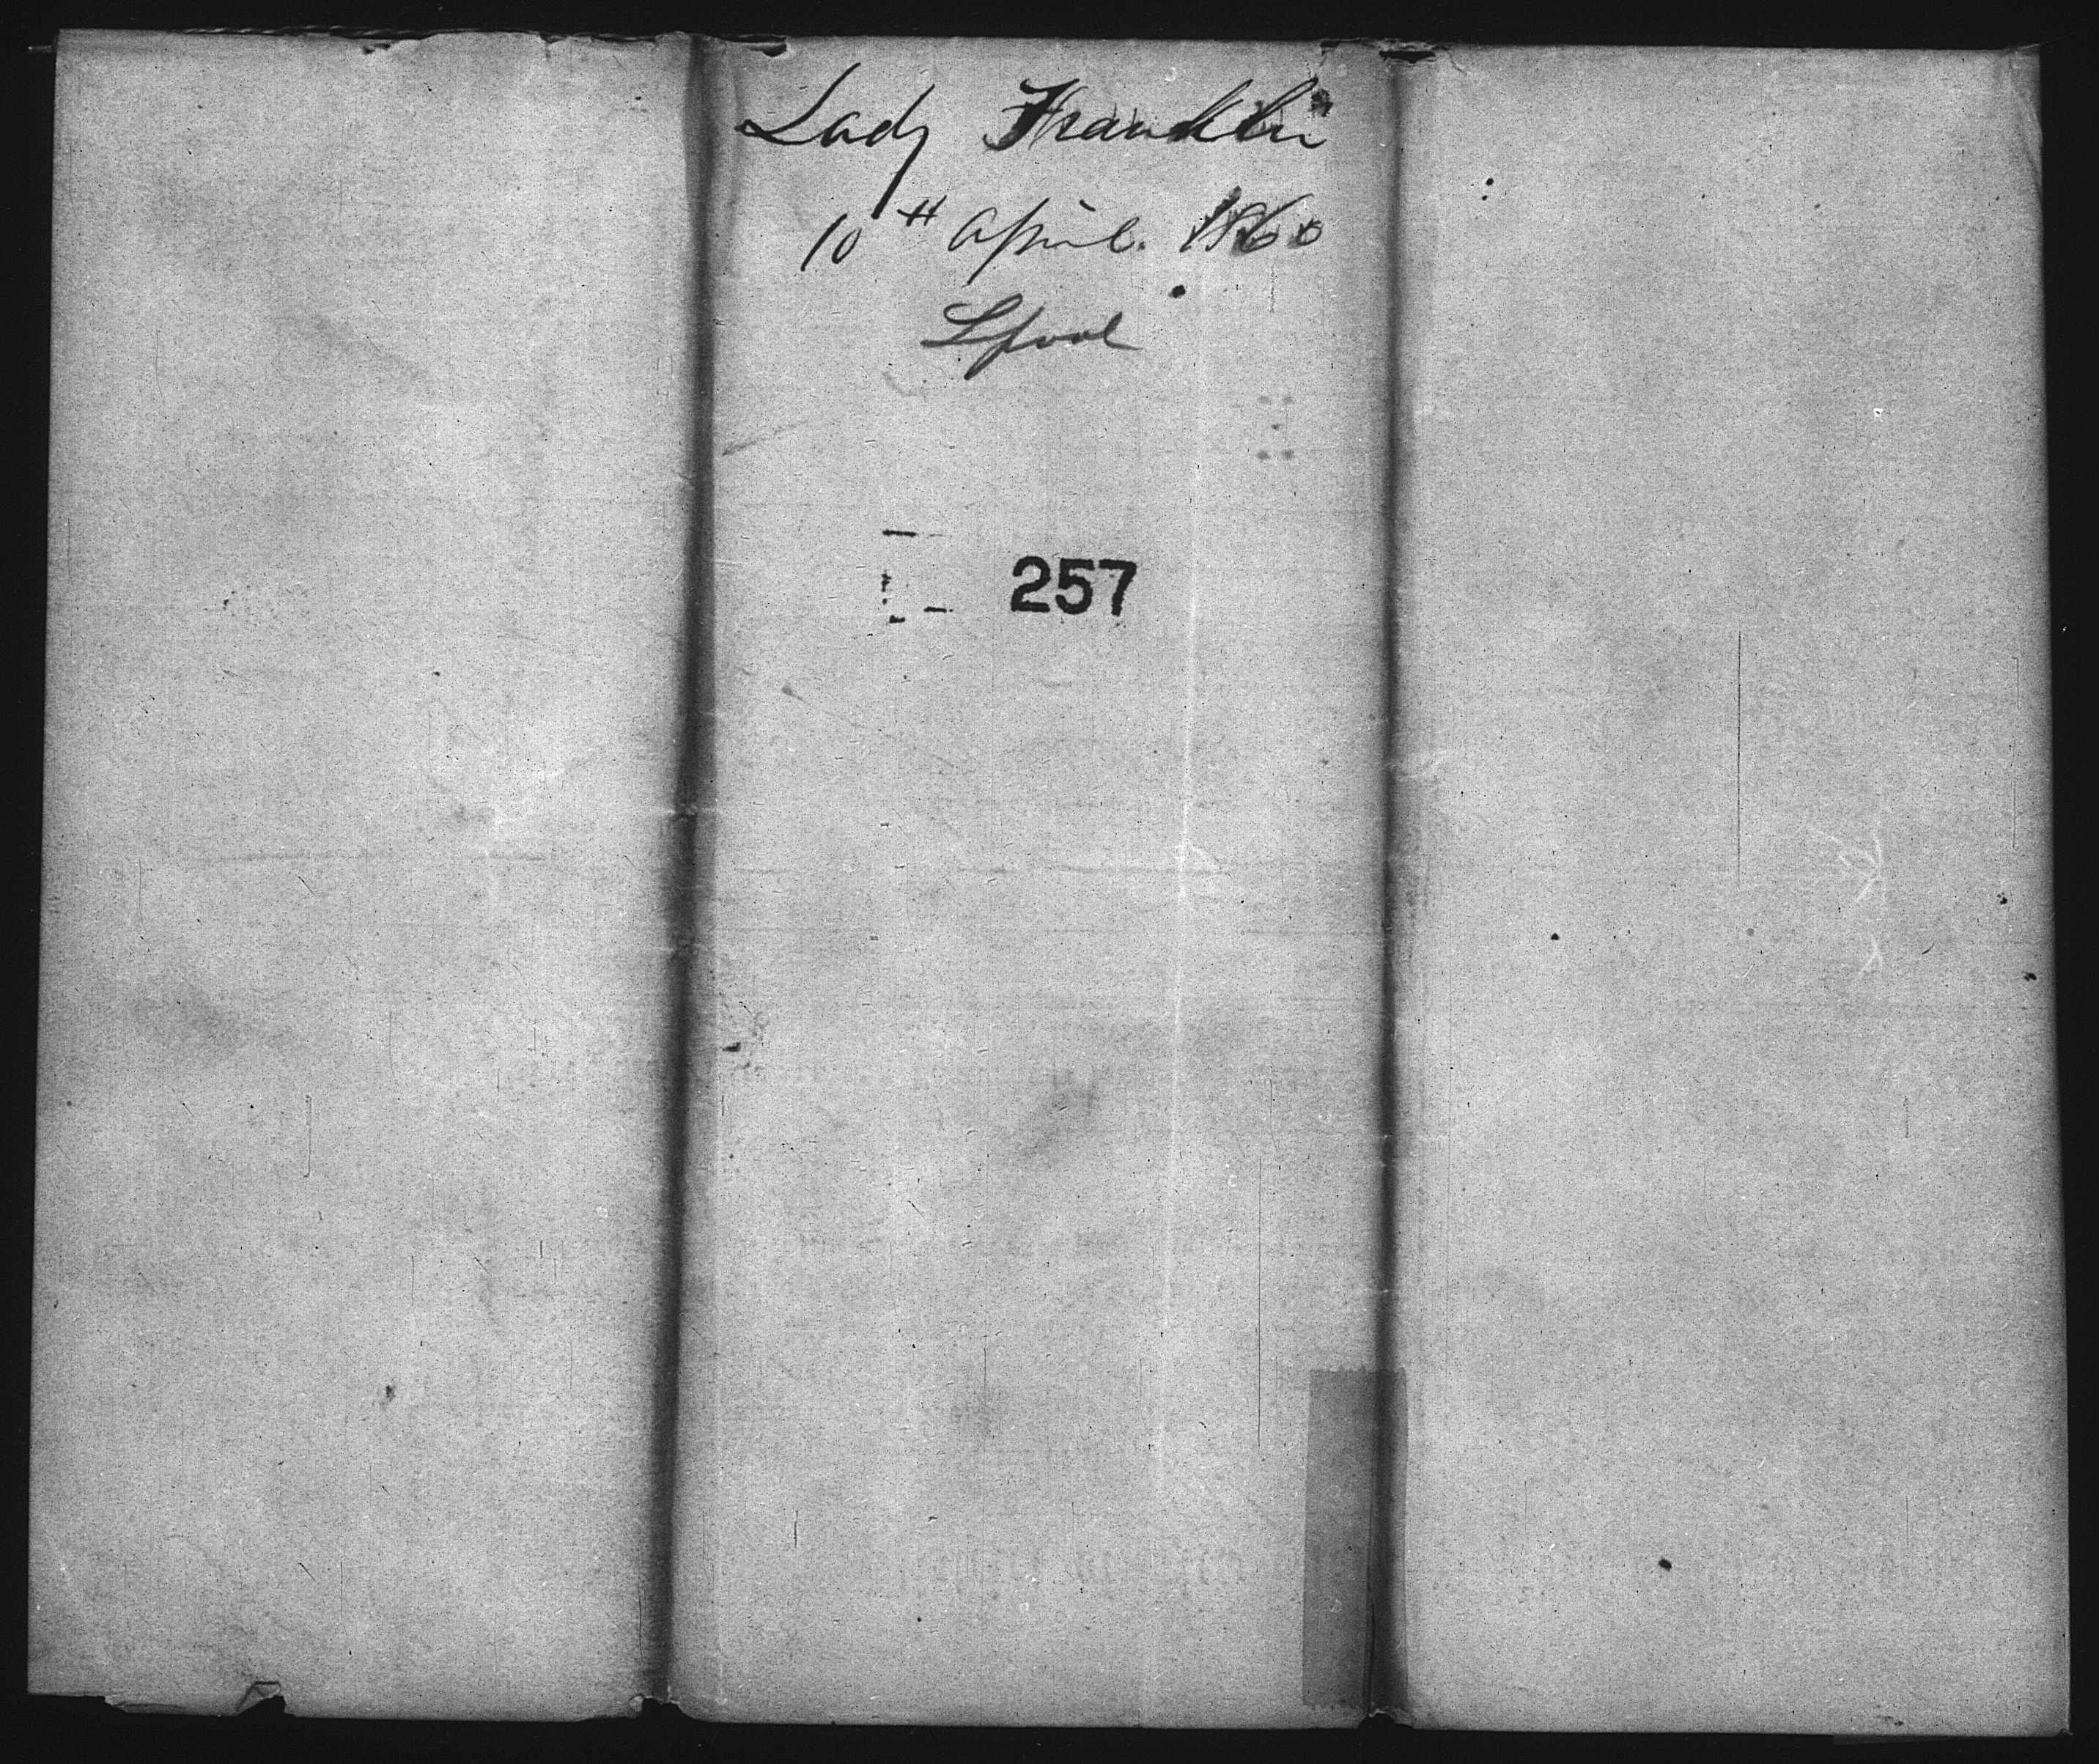 Lady Franklin
10th April. 1860
Lpool
257